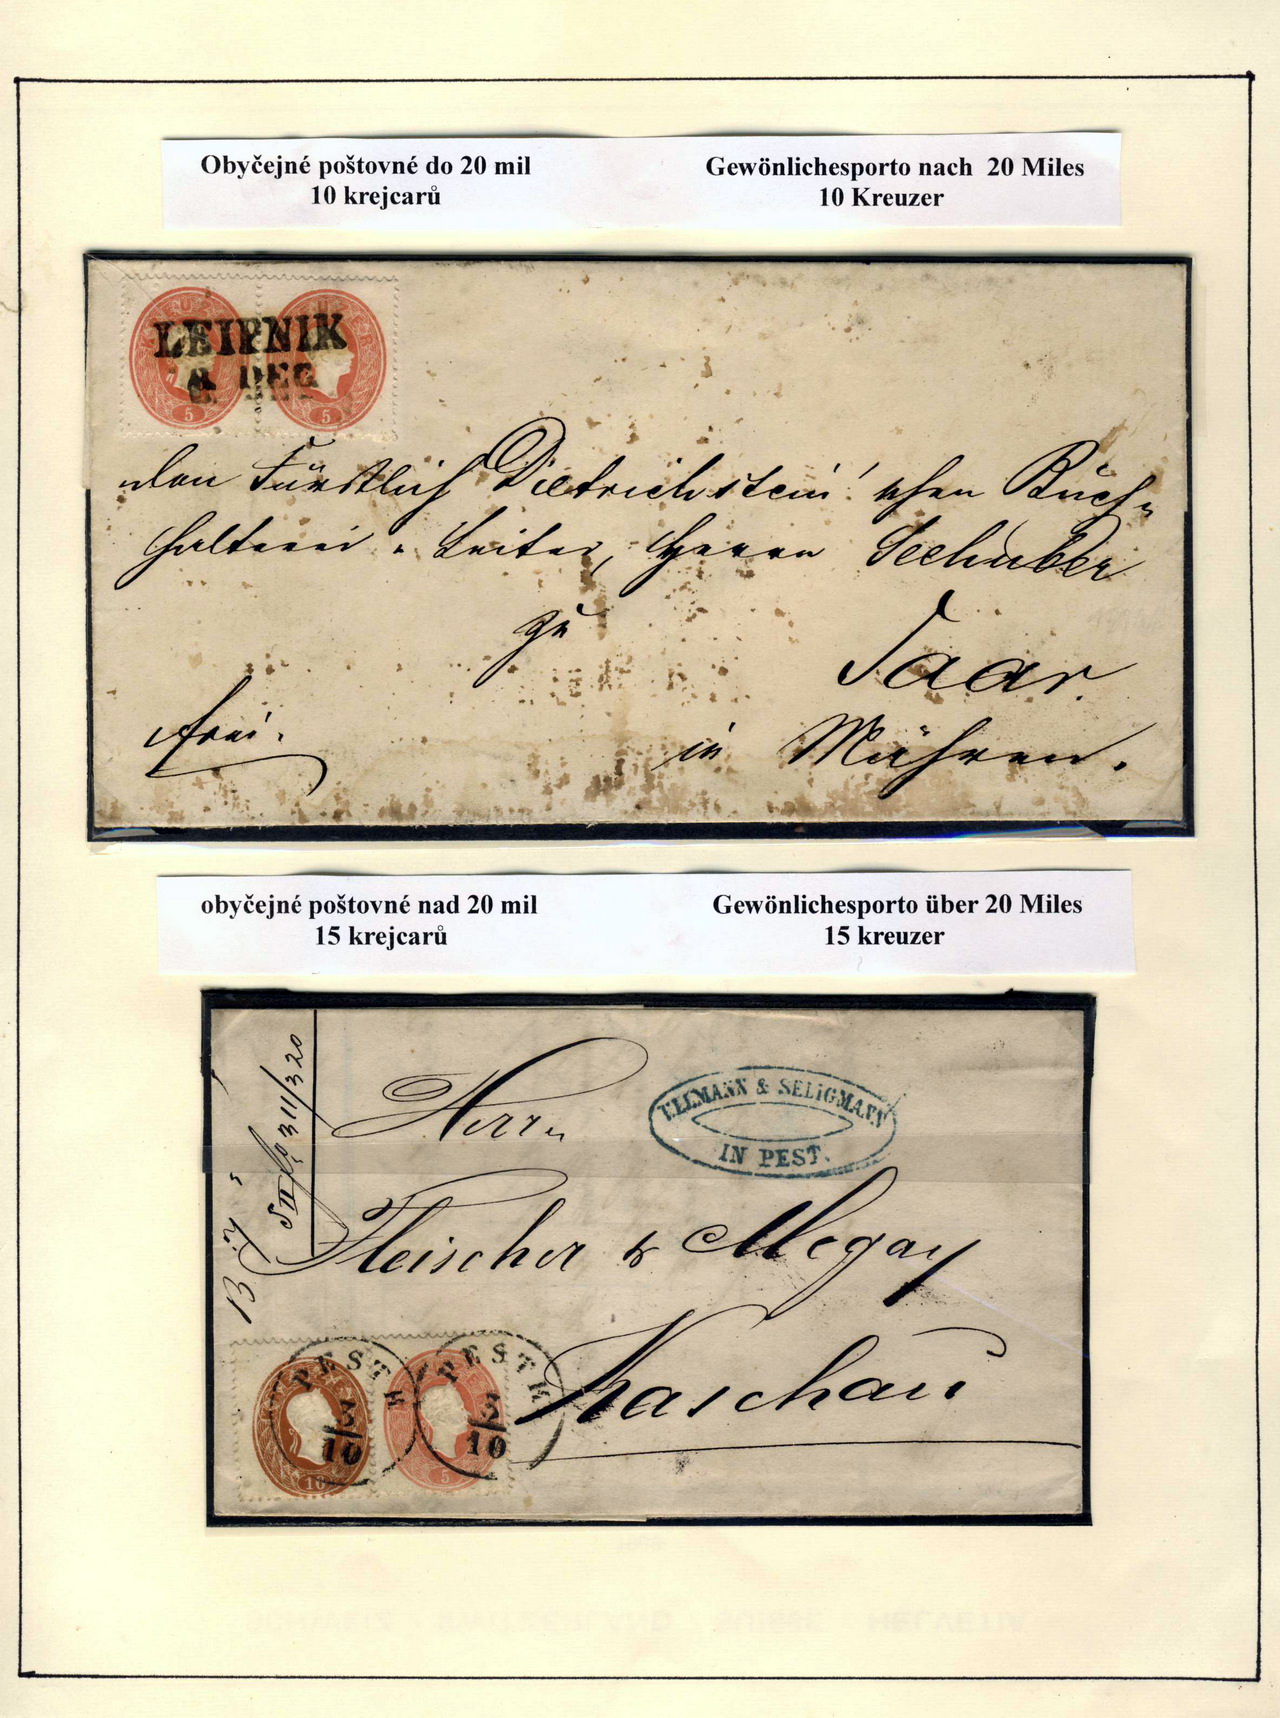 Obyčejné poštovné do 20 mil
10 krejcarů
Gewönlichesporto nach 20 Miles
10 Kreuzer
LEIPNIK
8. DEC
5
5
den Fürstlich Dietrichstein'schen Buch-
halterei-Leiter, Herrn Seehuber
zu
Saar.
frei.
in Mähren.
obyčejné poštovné nad 20 mil
15 krejcarů
Gewönlichesporto über 20 Miles
15 kreuzer
311/320
Herrn
ULLMANN & SELIGMANN
IN PEST.
Fleischer & Megay
Kaschau
PESTH
3/10
PESTH
3/10
10
5
SCHWEIZ SWITZERLAND SUISSE HELVETIA